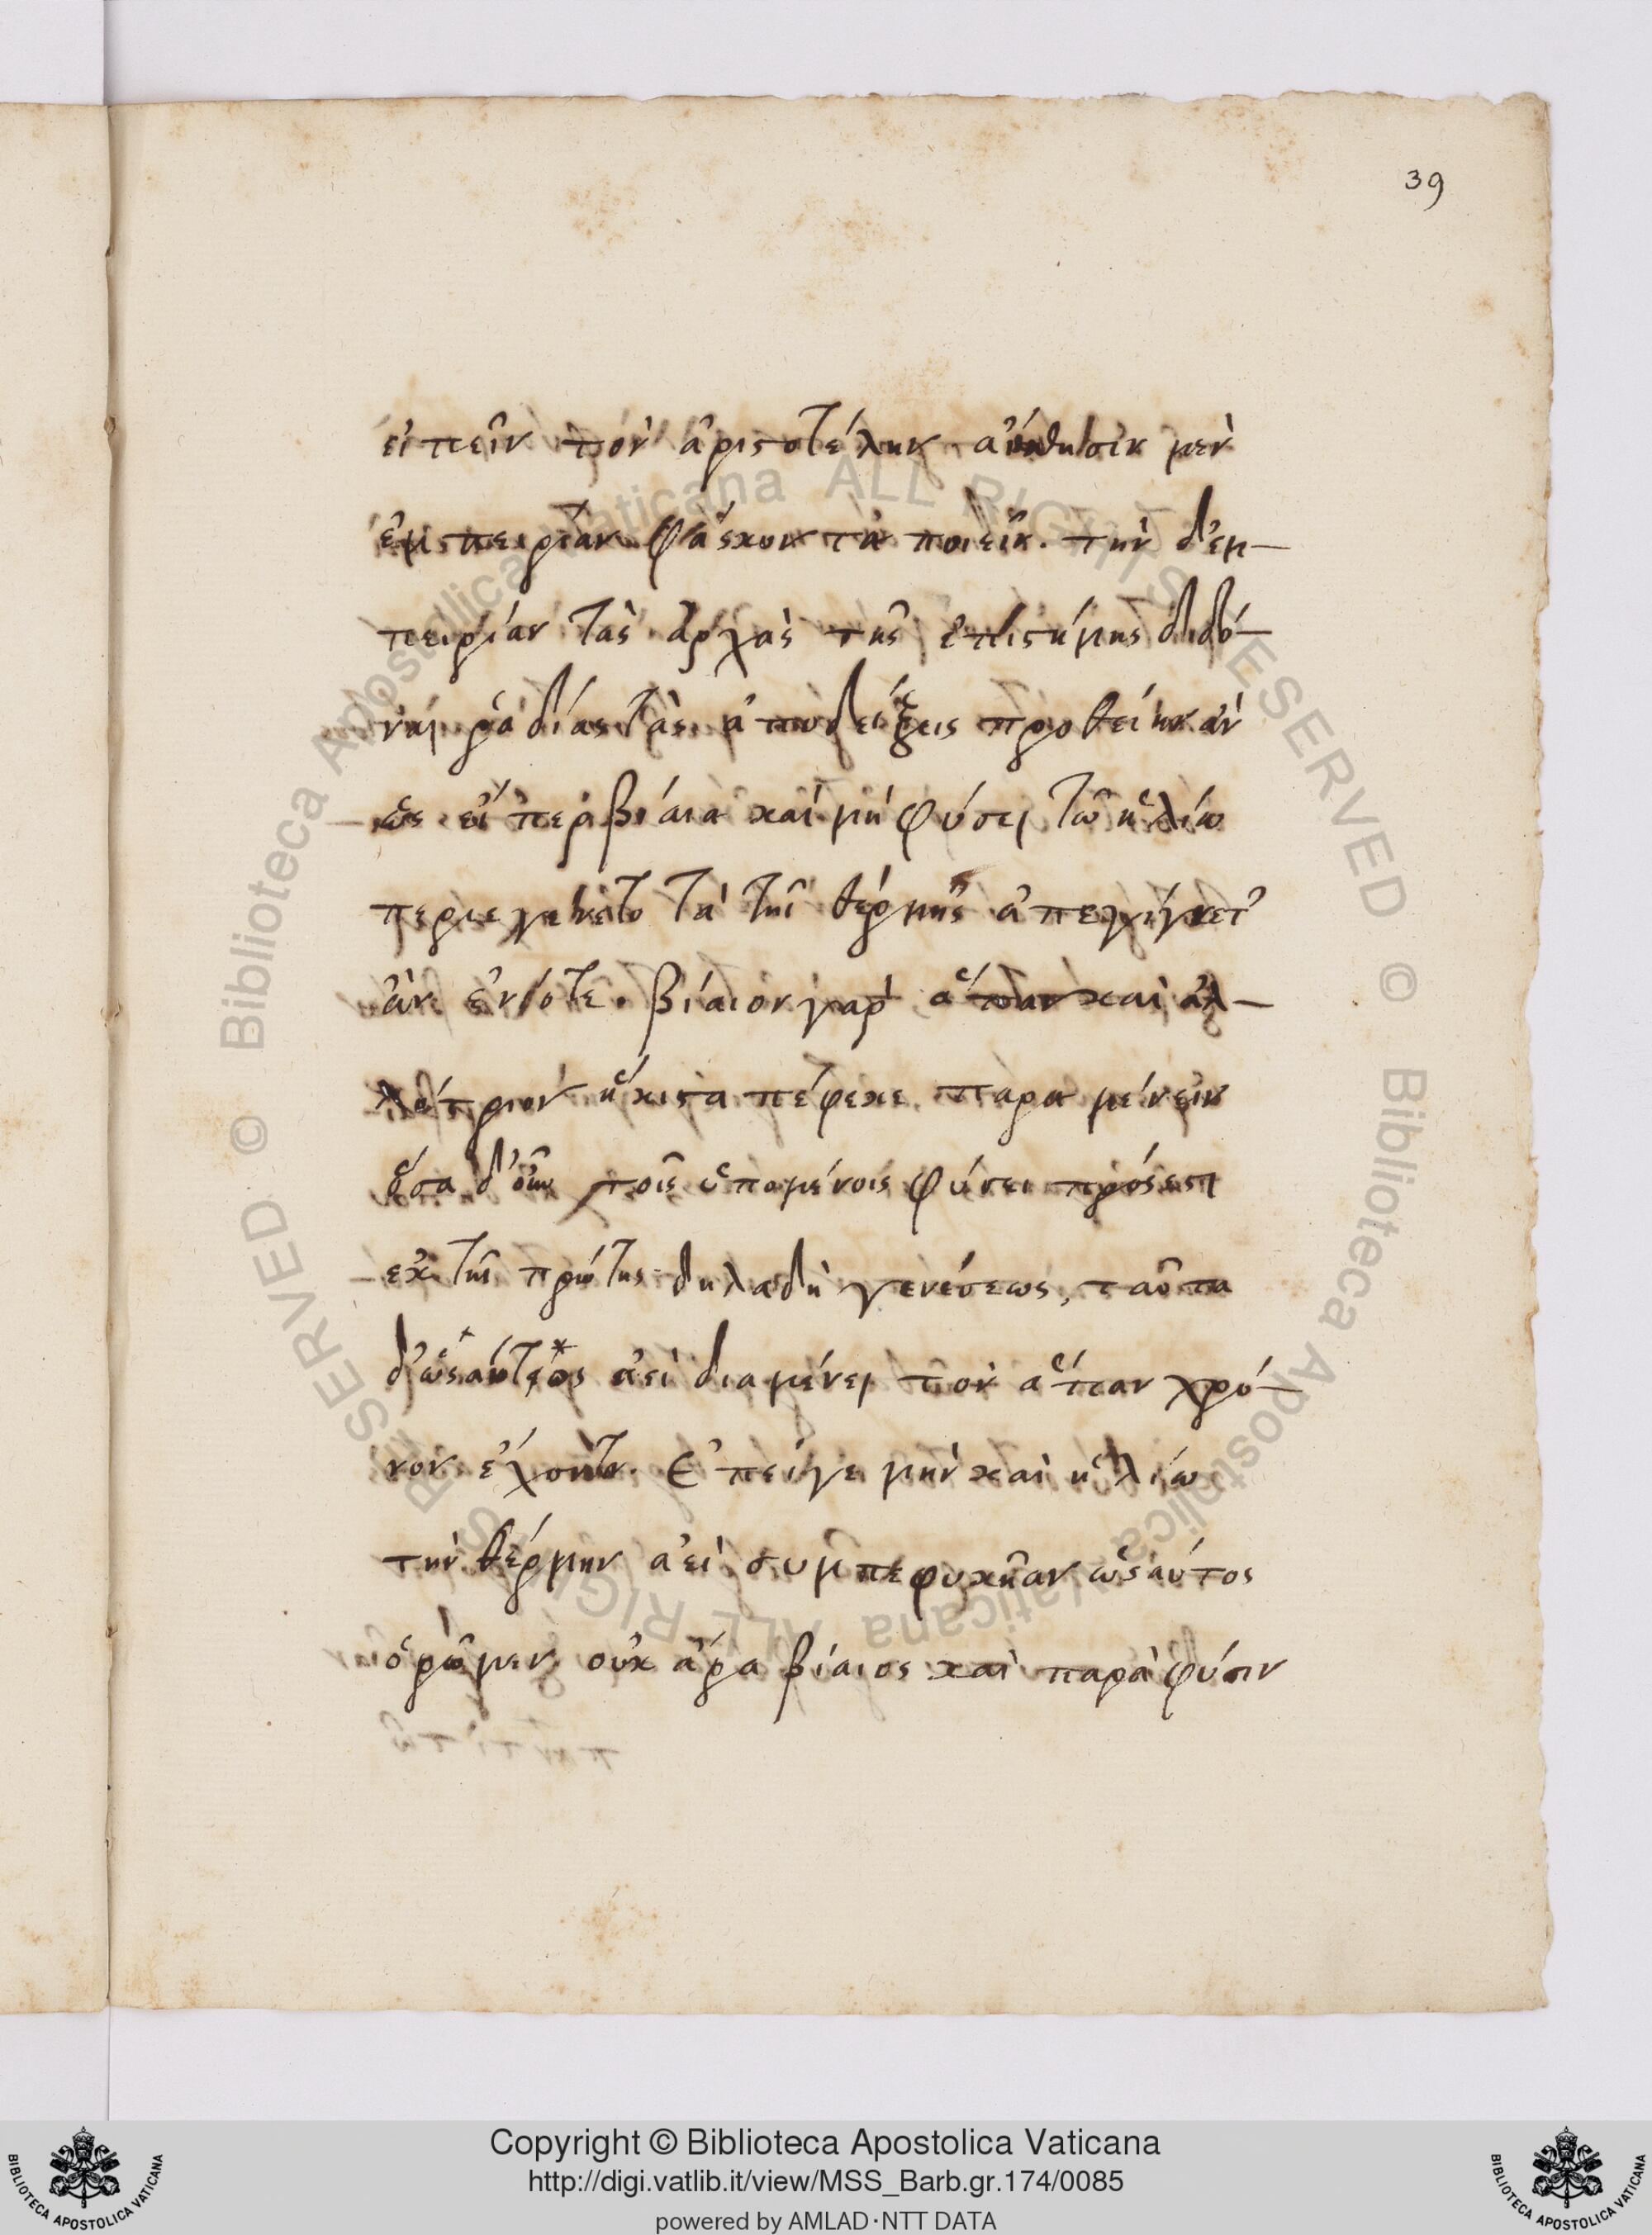 39
εἰπεῖν τὸν ἀριστοτέλην αἴσθησιν μὲν
ἐμπειρίαν φάσκοντα ποιεῖν. τὴν δ᾽ ἐμ-
πειρίαν τὰς ἀρχὰς τῆς ἐπιστήμης διδό-
ναι ῥαδίας τὰς ἀποδείξεις προθείην ἂν
ὡς εἴπερ βίαια καὶ μὴ φύσει τῶ ἡλίω
περιεγένετο τὰ τῆς θέρμης ἀπεγίγνετ᾽
ἂν ἐνίοτε. βίαιον γὰρ ἅπαν καὶ ἀλ-
λότριον ἥκιστα πέφυκε παραμένειν
ὅσα δ᾽ οὖν τοῖς ὑπομένοις φύσει πρόσεστι
ἐκ τῆς πρώτης δηλαδὴ γενέσεως, ταῦτα
δ᾽ ὡσαύτως ἀεὶ διαμένει τὸν ἅπαν χρό-
νον ἔχοντα. Ἐπείγε μὴν καὶ ἡλίω
τὴν θέρμην ἀεὶ συμπεφυκῆαν ὡσαύτος
ὁρῶμεν οὐκ ἄρα βίαιος καὶ παρὰ φύσιν
Biblioteca Apostolica Vaticana ALL RIGHTS RESERVED ©
Biblioteca Apostolica Vaticana ALL RIGHTS RESERVED ©
BIBLIOTECA APOSTOLICA VATICANA
Copyright © Biblioteca Apostolica Vaticana
http://digi.vatlib.it/view/MSS_Barb.gr.174/0085
powered by AMLAD·NTT DATA
BIBLIOTECA APOSTOLICA VATICANA